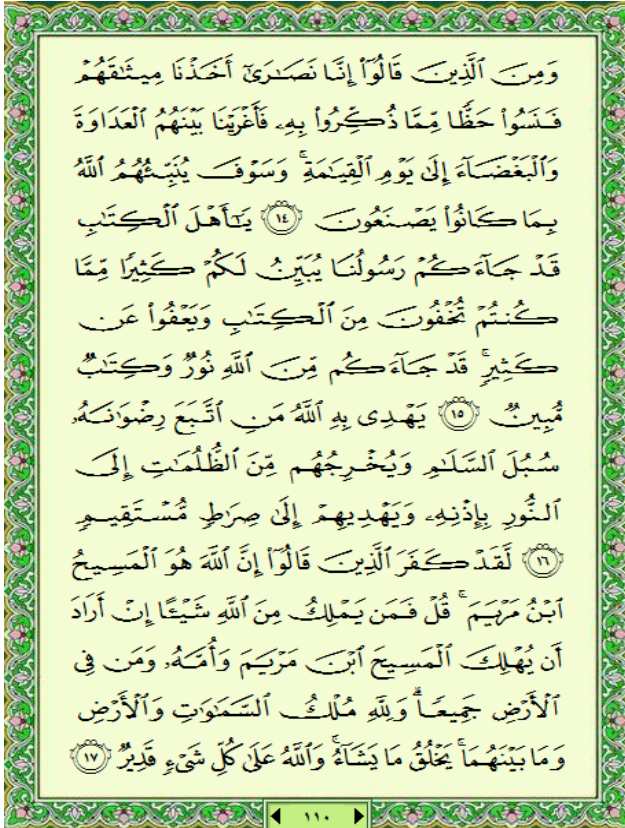 وَمِنَ ٱلَّذِينَ قَالُوٓا۟ إِنَّا نَصَـٰرَىٰٓ أَخَذْنَا مِيثَـٰقَهُمْ
فَنَسُوا۟ حَظًّا مِّمَّا ذُكِّرُوا۟ بِهِۦ فَأَغْرَيْنَا بَيْنَهُمُ ٱلْعَدَاوَةَ
وَٱلْبَغْضَآءَ إِلَىٰ يَوْمِ ٱلْقِيَـٰمَةِ ۚ وَسَوْفَ يُنَبِّئُهُمُ ٱللَّهُ
بِمَا كَانُوا۟ يَصْنَعُونَ ١٤ يَـٰٓأَهْلَ ٱلْكِتَـٰبِ
قَدْ جَآءَكُمْ رَسُولُنَا يُبَيِّنُ لَكُمْ كَثِيرًا مِّمَّا
كُنتُمْ تُخْفُونَ مِنَ ٱلْكِتَـٰبِ وَيَعْفُوا۟ عَن
كَثِيرٍ ۚ قَدْ جَآءَكُم مِّنَ ٱللَّهِ نُورٌ وَكِتَـٰبٌ
مُّبِينٌ ١٥ يَهْدِى بِهِ ٱللَّهُ مَنِ ٱتَّبَعَ رِضْوَٰنَهُۥ
سُبُلَ ٱلسَّلَـٰمِ وَيُخْرِجُهُم مِّنَ ٱلظُّلُمَـٰتِ إِلَى
ٱلنُّورِ بِإِذْنِهِۦ وَيَهْدِيهِمْ إِلَىٰ صِرَٰطٍ مُّسْتَقِيمٍ
١٦ لَّقَدْ كَفَرَ ٱلَّذِينَ قَالُوٓا۟ إِنَّ ٱللَّهَ هُوَ ٱلْمَسِيحُ
ٱبْنُ مَرْيَمَ ۚ قُلْ فَمَن يَمْلِكُ مِنَ ٱللَّهِ شَيْـًٔا إِنْ أَرَادَ
أَن يُهْلِكَ ٱلْمَسِيحَ ٱبْنَ مَرْيَمَ وَأُمَّهُۥ وَمَن فِى
ٱلْأَرْضِ جَمِيعًا ۗ وَلِلَّهِ مُلْكُ ٱلسَّمَـٰوَٰتِ وَٱلْأَرْضِ
وَمَا بَيْنَهُمَا ۚ يَخْلُقُ مَا يَشَآءُ ۚ وَٱللَّهُ عَلَىٰ كُلِّ شَىْءٍ قَدِيرٌ ١٧
١١٠